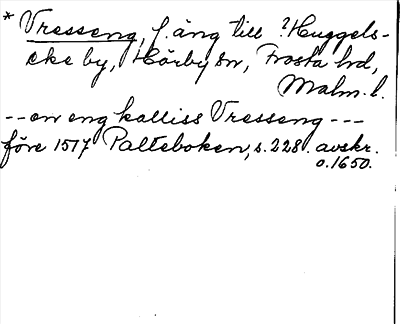 * Vresseng, f. äng till ? Huggels-
eke by, Hörby sn, Frosta hd,
Malm. l.
-- en eng kalliss Vresseng ---
före 1517 Palteboken, s. 228. avskr.
o. 1650.